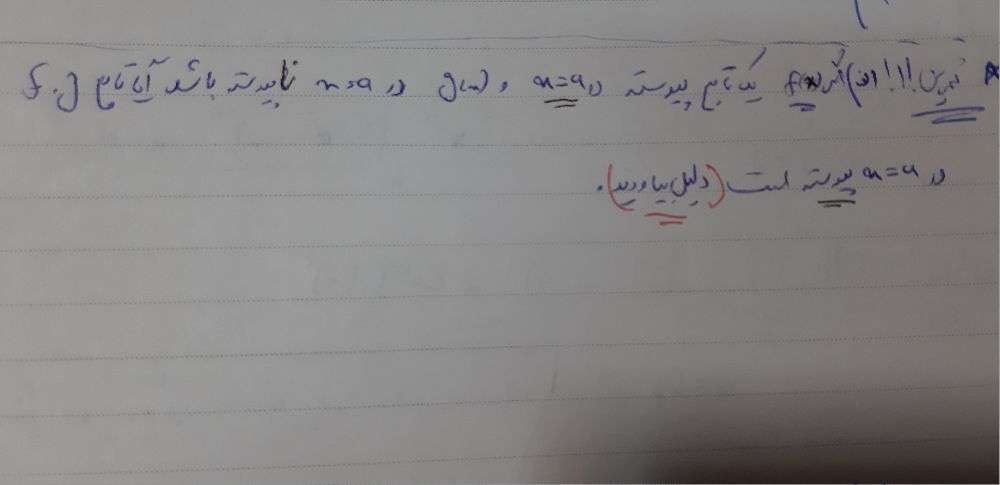 تمرین !! الف) اگر f(x) یک تابع پیوسته در x=a و g(x) در x=a ناپیوسته باشد آیا تابع f.g
در x=a پیوسته است (دلیل بیاورید).